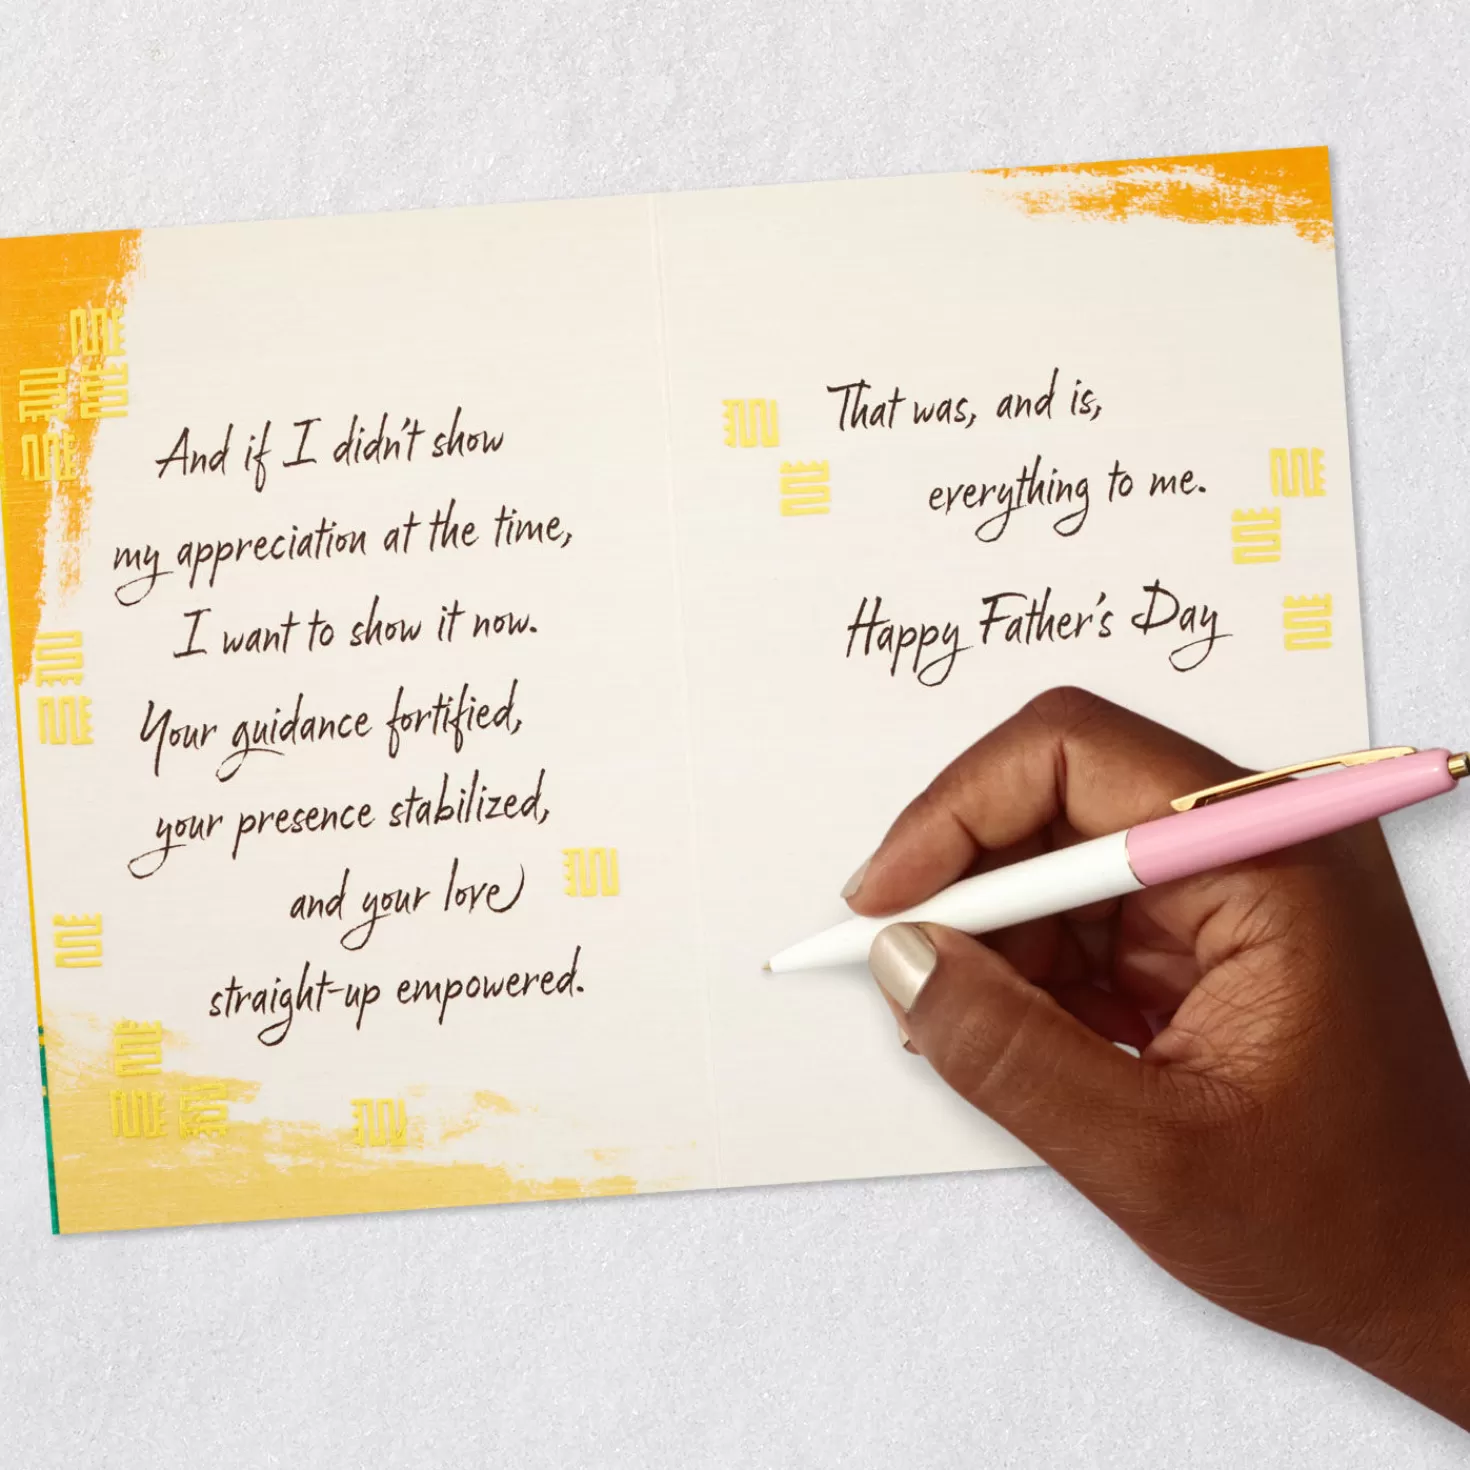 And if I didn't show
my appreciation at the time,
I want to show it now.
Your guidance fortified,
your presence stabilized,
and your love
straight-up empowered.
That was, and is,
everything to me.
Happy Father's Day